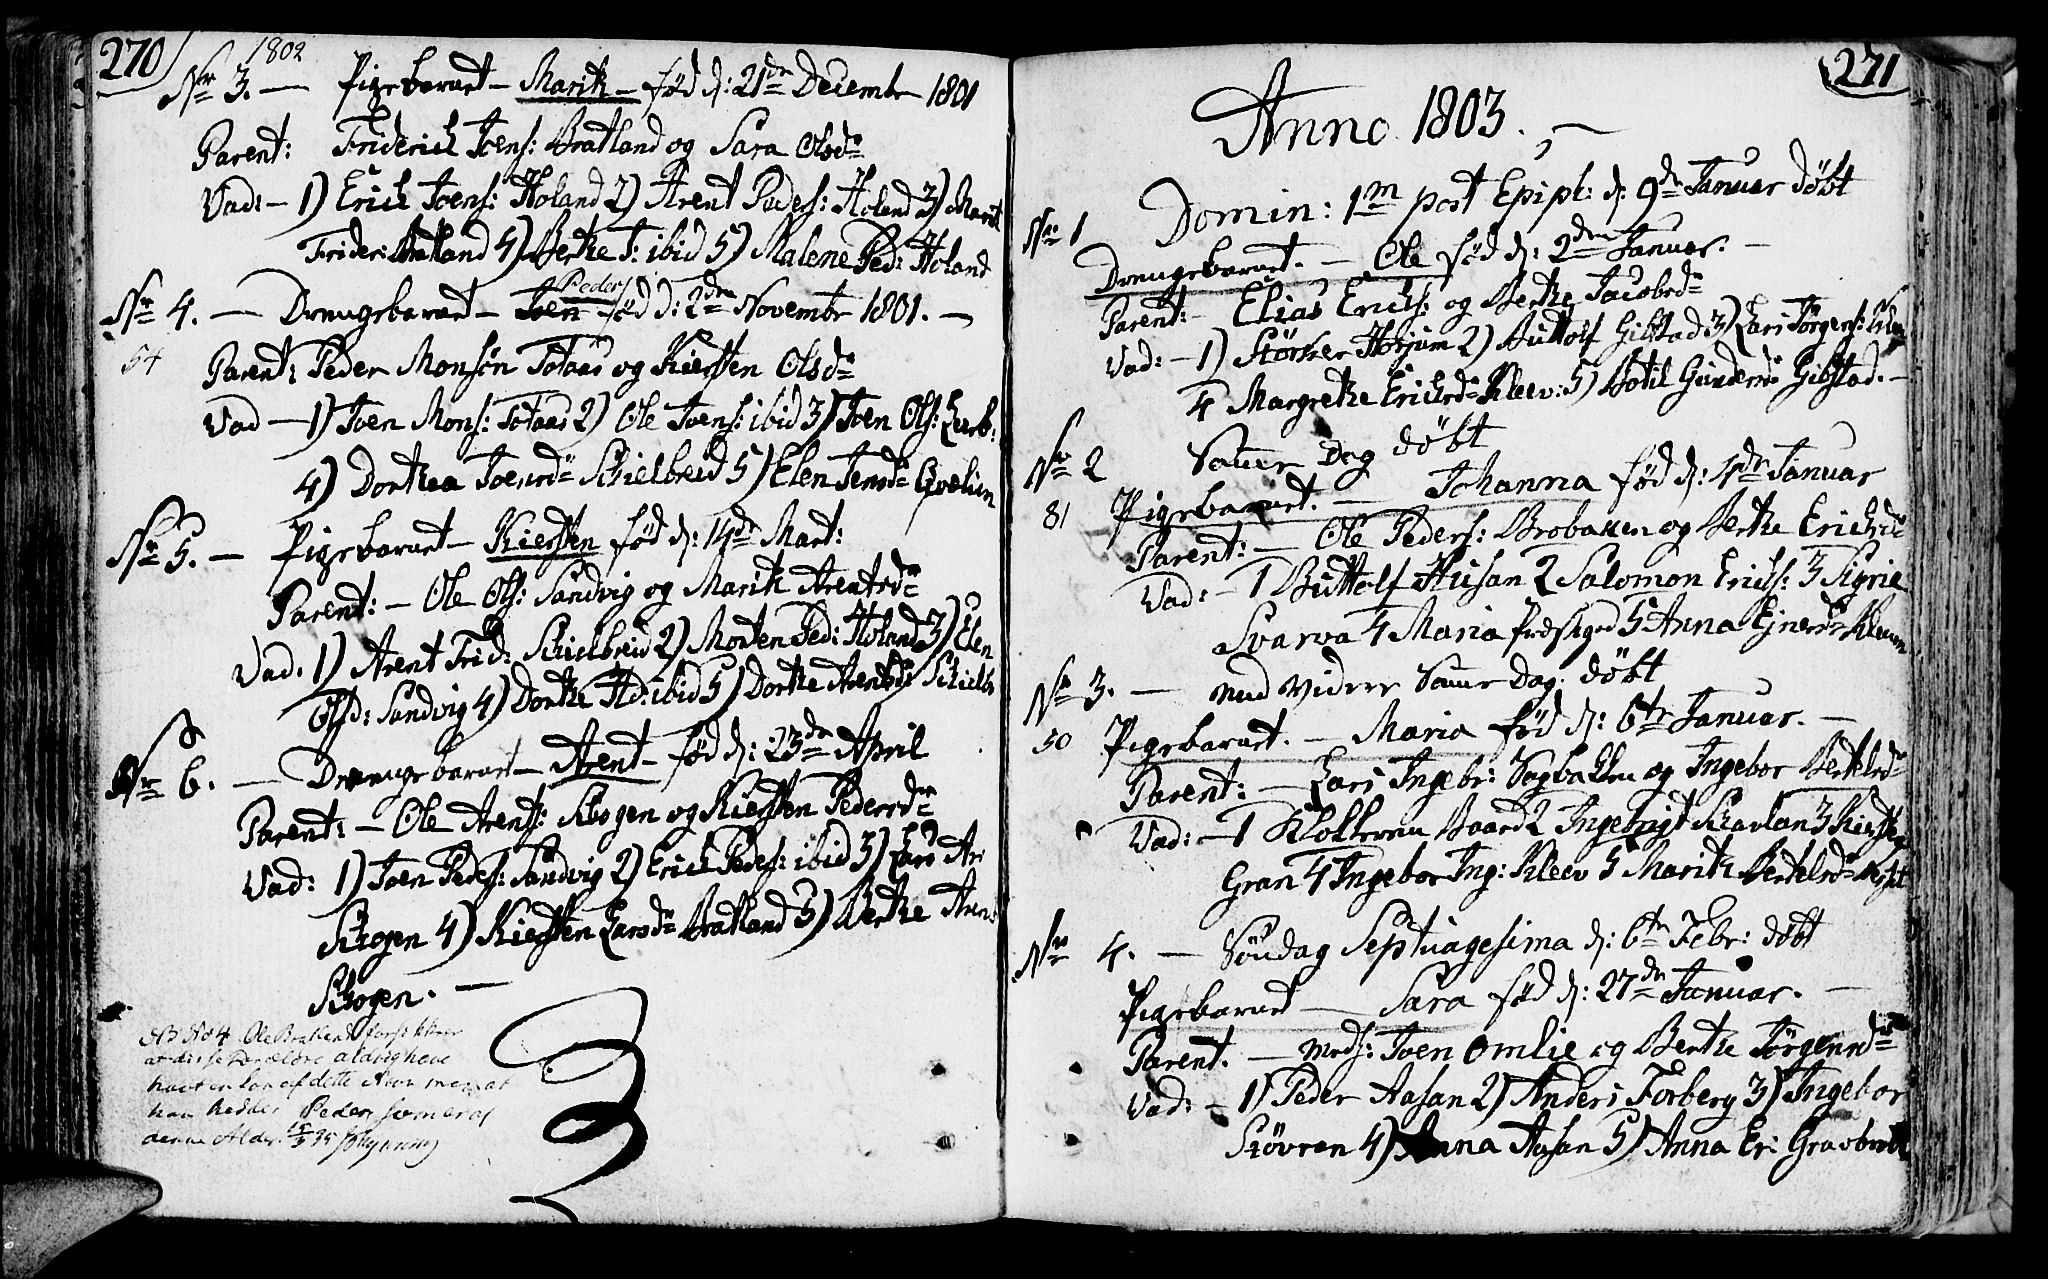 270
1802
Nr 3. — Pigebarnet — Marith — fød d: 21de Decembr 1801
Parent: Friderich Joens: Bratland og Sara Olsdr
Vad: — 1) Erich Joens: Holand 2) Arent Peders: Holand 3) Marit
Frider: Bratland 4) Berthe T: ibid 5) Malene Ped: Holand
Peder
Nr 4. — Drengebarnet — Joen fød d: 2de Novembr 1801. —
54
Parent: Peder Monsøn Totaas og Kiersten Olsdr
Vad — 1) Joen Mons: Totaas 2) Ole Joens: ibid 3) Joen Ols:
4) Dorthea Joensdr Schielbreid 5) Elen Jensdr Qvelien
Nr 5. — Pigebarnet — Kiersten fød d: 14de Mart:
Parent: — Ole Ols: Sandvig og Marith Arentsdr
Vad: 1) Arent Frid: Schielbreid 2) Morten Ped: Holand 3) Elen
Olsd: Sandvig 4) Dorthe Hd: ibid 5) Dorthe Arentsdr Schielb
Nr 6. — Drengebarnet — Arent — fød d: 23de April
Parent: — Ole Arents: Skogen og Kiersten Pedersdr
Vad: 1) Joen Peders: Sandvig 2) Erich Peders: ibid 3) Lars Ar
Skogen 4) Kiersten Larsdr Bratland 5) Berthe Aren
Skogen. —
NB No 4 Ole Brakend forsikkrer
at disse Forældre aldrig have
havt en Søn af dette Navn men at
han hedder Peder som er af
denne Alder.
271
Anno 1803. —
Nr 1 Domin: 1m post Epiph: d: 9de Januar døbt
Drengebarnet. — Ole fød d: 2den Januar. —
Parent: — Elias Erichs: og Berthe Jacobsdr
Vad: — 1) Størker Horjum 2) Buttolf Gibstad 3) Lars Jørgens:
4 Margrethe Erichsdr Kleev: 5) Botil Gundersdr Gibstad. —
Nr 2 Samme Dag døbt
81 Pigebarnet. — Johanna fød d: 1de Januar
Parent: — Ole Peders: Brobakken og Berthe Erichsdr
Vad: — 1 Buttolf Husan 2 Salomon Erichs: 3 Sigrie
Svarva 4 Maria Præstegrd 5 Anna Ejnersdr Kleven
Nr 3. — end videre Samme Dag. døbt
50 Pigebarnet. — Maria fød d: 6te Januar. —
Parent: — Lars Ingebr: Sagbakken og Ingebor Bertelsdr
Vad: — 1 Klokkeren Baard 2 Ingebrigt Skavlan 3
Gran 4 Ingebor Ing: Kleev 5 Marith Bertelsdr
Nr 4. — Søndag Septuagesima d: 6te Febr: døbt
Pigebarnet — Sara fød d: 27de Januar. —
Parent. — Mads: Joen Omlie og Berthe Jörgensdr
Vad: — 1) Peder Aasan 2) Anders Forberg 3) Ingebor
Støvran 4) Anna Aasan 5) Anna Er: